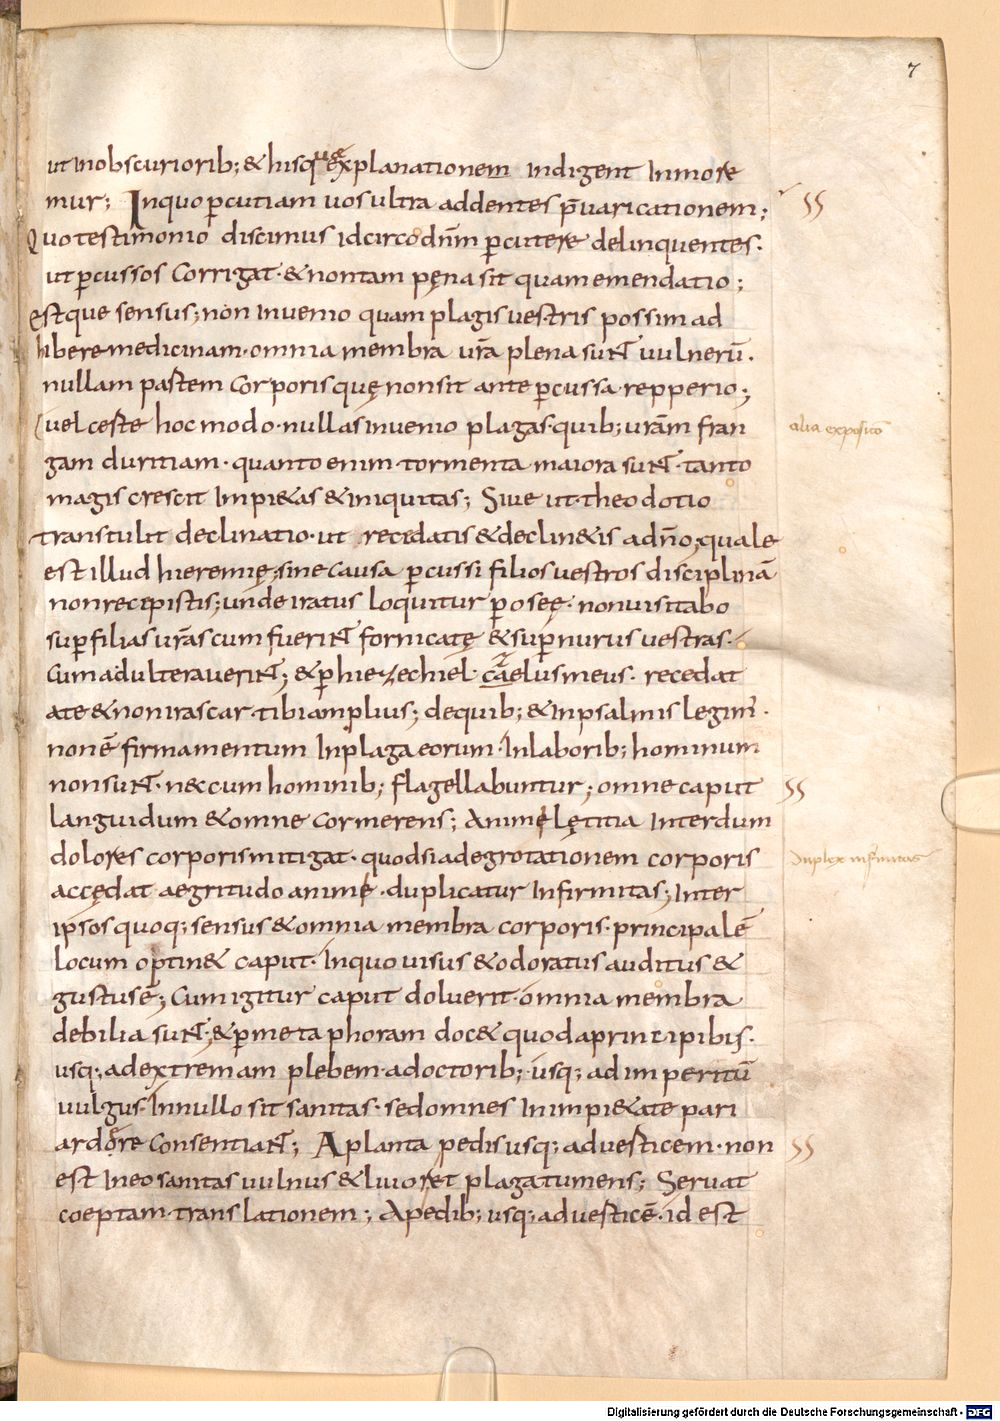 7
ut inobscuriorib; & hisq; uę explanationem indigent Inmore
mur; Inquo ꝑcutiam uos ultra addentes p̄uaricationem;
Quo testimonio discimus idcirco dn̄m ꝑcutere delinquentes.
ut ꝑcussos corrigat. & non tam pęna sit quam emendatio;
Estque sensus; non Inuenio quam plagis uestris possim ad
hibere medicinam. omnia membra ur̄a plena sunt uulnerū.
nullam partem corporis quę non sit ante ꝑcussa repperio;
uel certe hoc modo. nullas inuenio plagas. quib; ur̄am fran
gam duritiam. quanto enim tormenta maiora sunt. tanto
magis crescit Impi&as & iniquitas; Siue ut theodotio
transtulit declinatio. ut recedatis & declin&is adn̄o; quale
est illud hieremię; sine causa ꝑcussi filios uestros disciplinā
non recepistis; unde iratus loquitur ꝑ oseę. non uisitabo
suꝑ filias ur̄as cum fuerint fornicatę & suꝑ nurus uestras.
Cum adulterauerint; & ꝑ hiezechiel. caelus meus. recedat
a te & non irascar. tibi amplius; de quib; & In psalmis legim'.
non ē firmamentum In plaga eorum. In laborib; hominum
non sunt. n& cum hominib; flagellabuntur; omne caput
languidum & omne cor merens; Animę lętitia Interdum
dolores corporis mitigat. quod si ad egrotationem corporis
accędat aegritudo animę. duplicatur Infirmitas; Inter
ipsos quoq; sensus & omnia membra corporis. principalē
locum optin& caput. Inquo uisus & odoratus auditus &
gustus ē; Cum igitur caput doluerit. omnia membra
debilia sunt; & ꝑ metaphoram doc& quod a principibus.
usq; ad extremam plebem. a doctorib; usq; ad imperitū
uulgus Innullo sit sanitas. sed omnes In impi&ate pari
ardore consentiant; A planta pedis usq; ad uerticem. non
est In eo sanitas uulnus & liuor et plaga tumens; Seruat
coeptam translationem; A pedib; usq; ad uerticē. id est
alia exposito
Duplex infirmitas
Digitalisierung gefördert durch die Deutsche Forschungsgemeinschaft - DFG